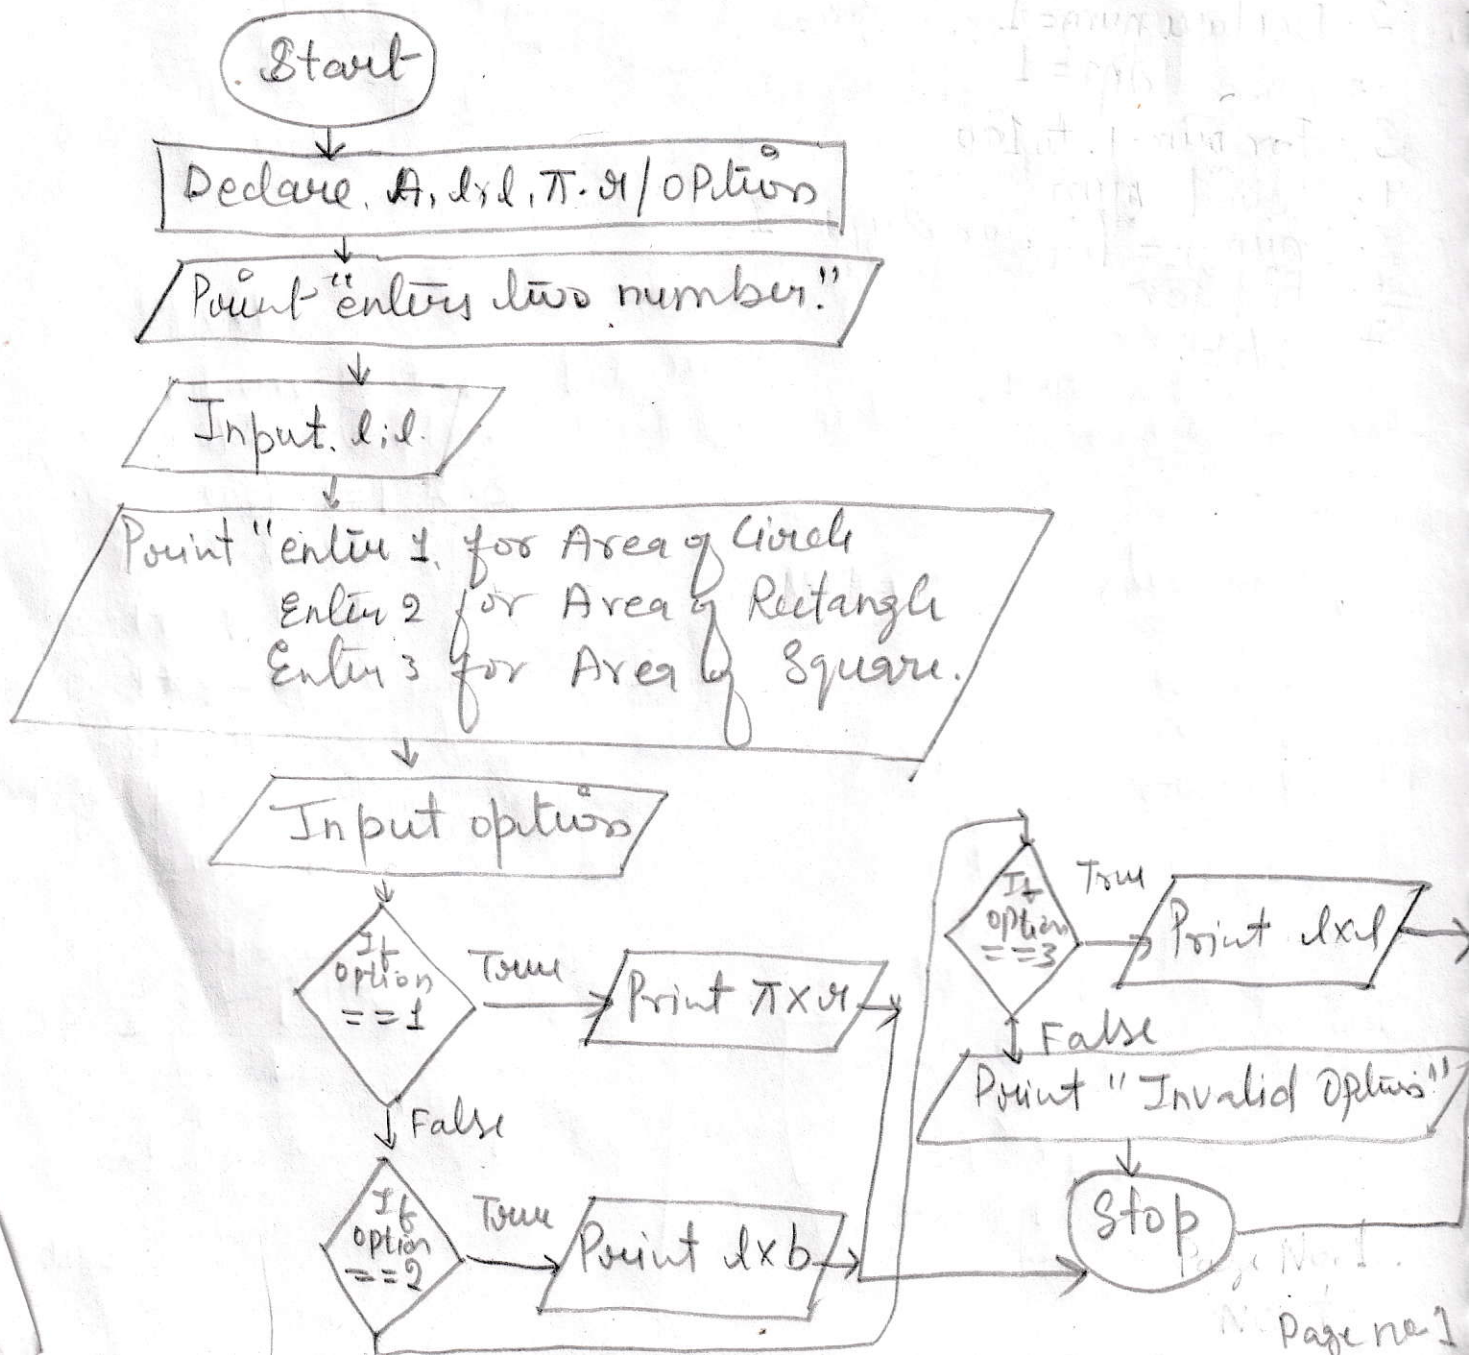 Start
Declare. A, l, l, π. r / option
Print "enters two number."
Input. l, l.
Print "enter 1. for Area of Circle
Enter 2 for Area of Rectangle
Enter 3 for Area of Square.
Input option
If
option
==1
True
Print π x r
False
If
option
==2
True
Print l x b
If
option
==3
True
Print l x l
False
Print "Invalid Option"
Stop
Page no 1